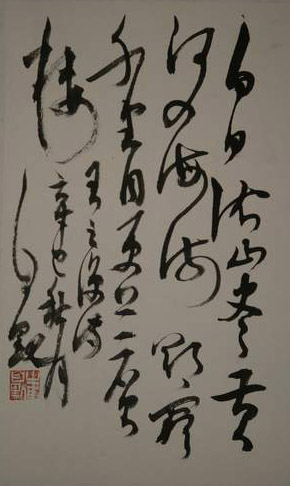 白日依山尽黄
河入海流欲穷
千里目更上一层
楼
王之涣诗
辛巳秋月